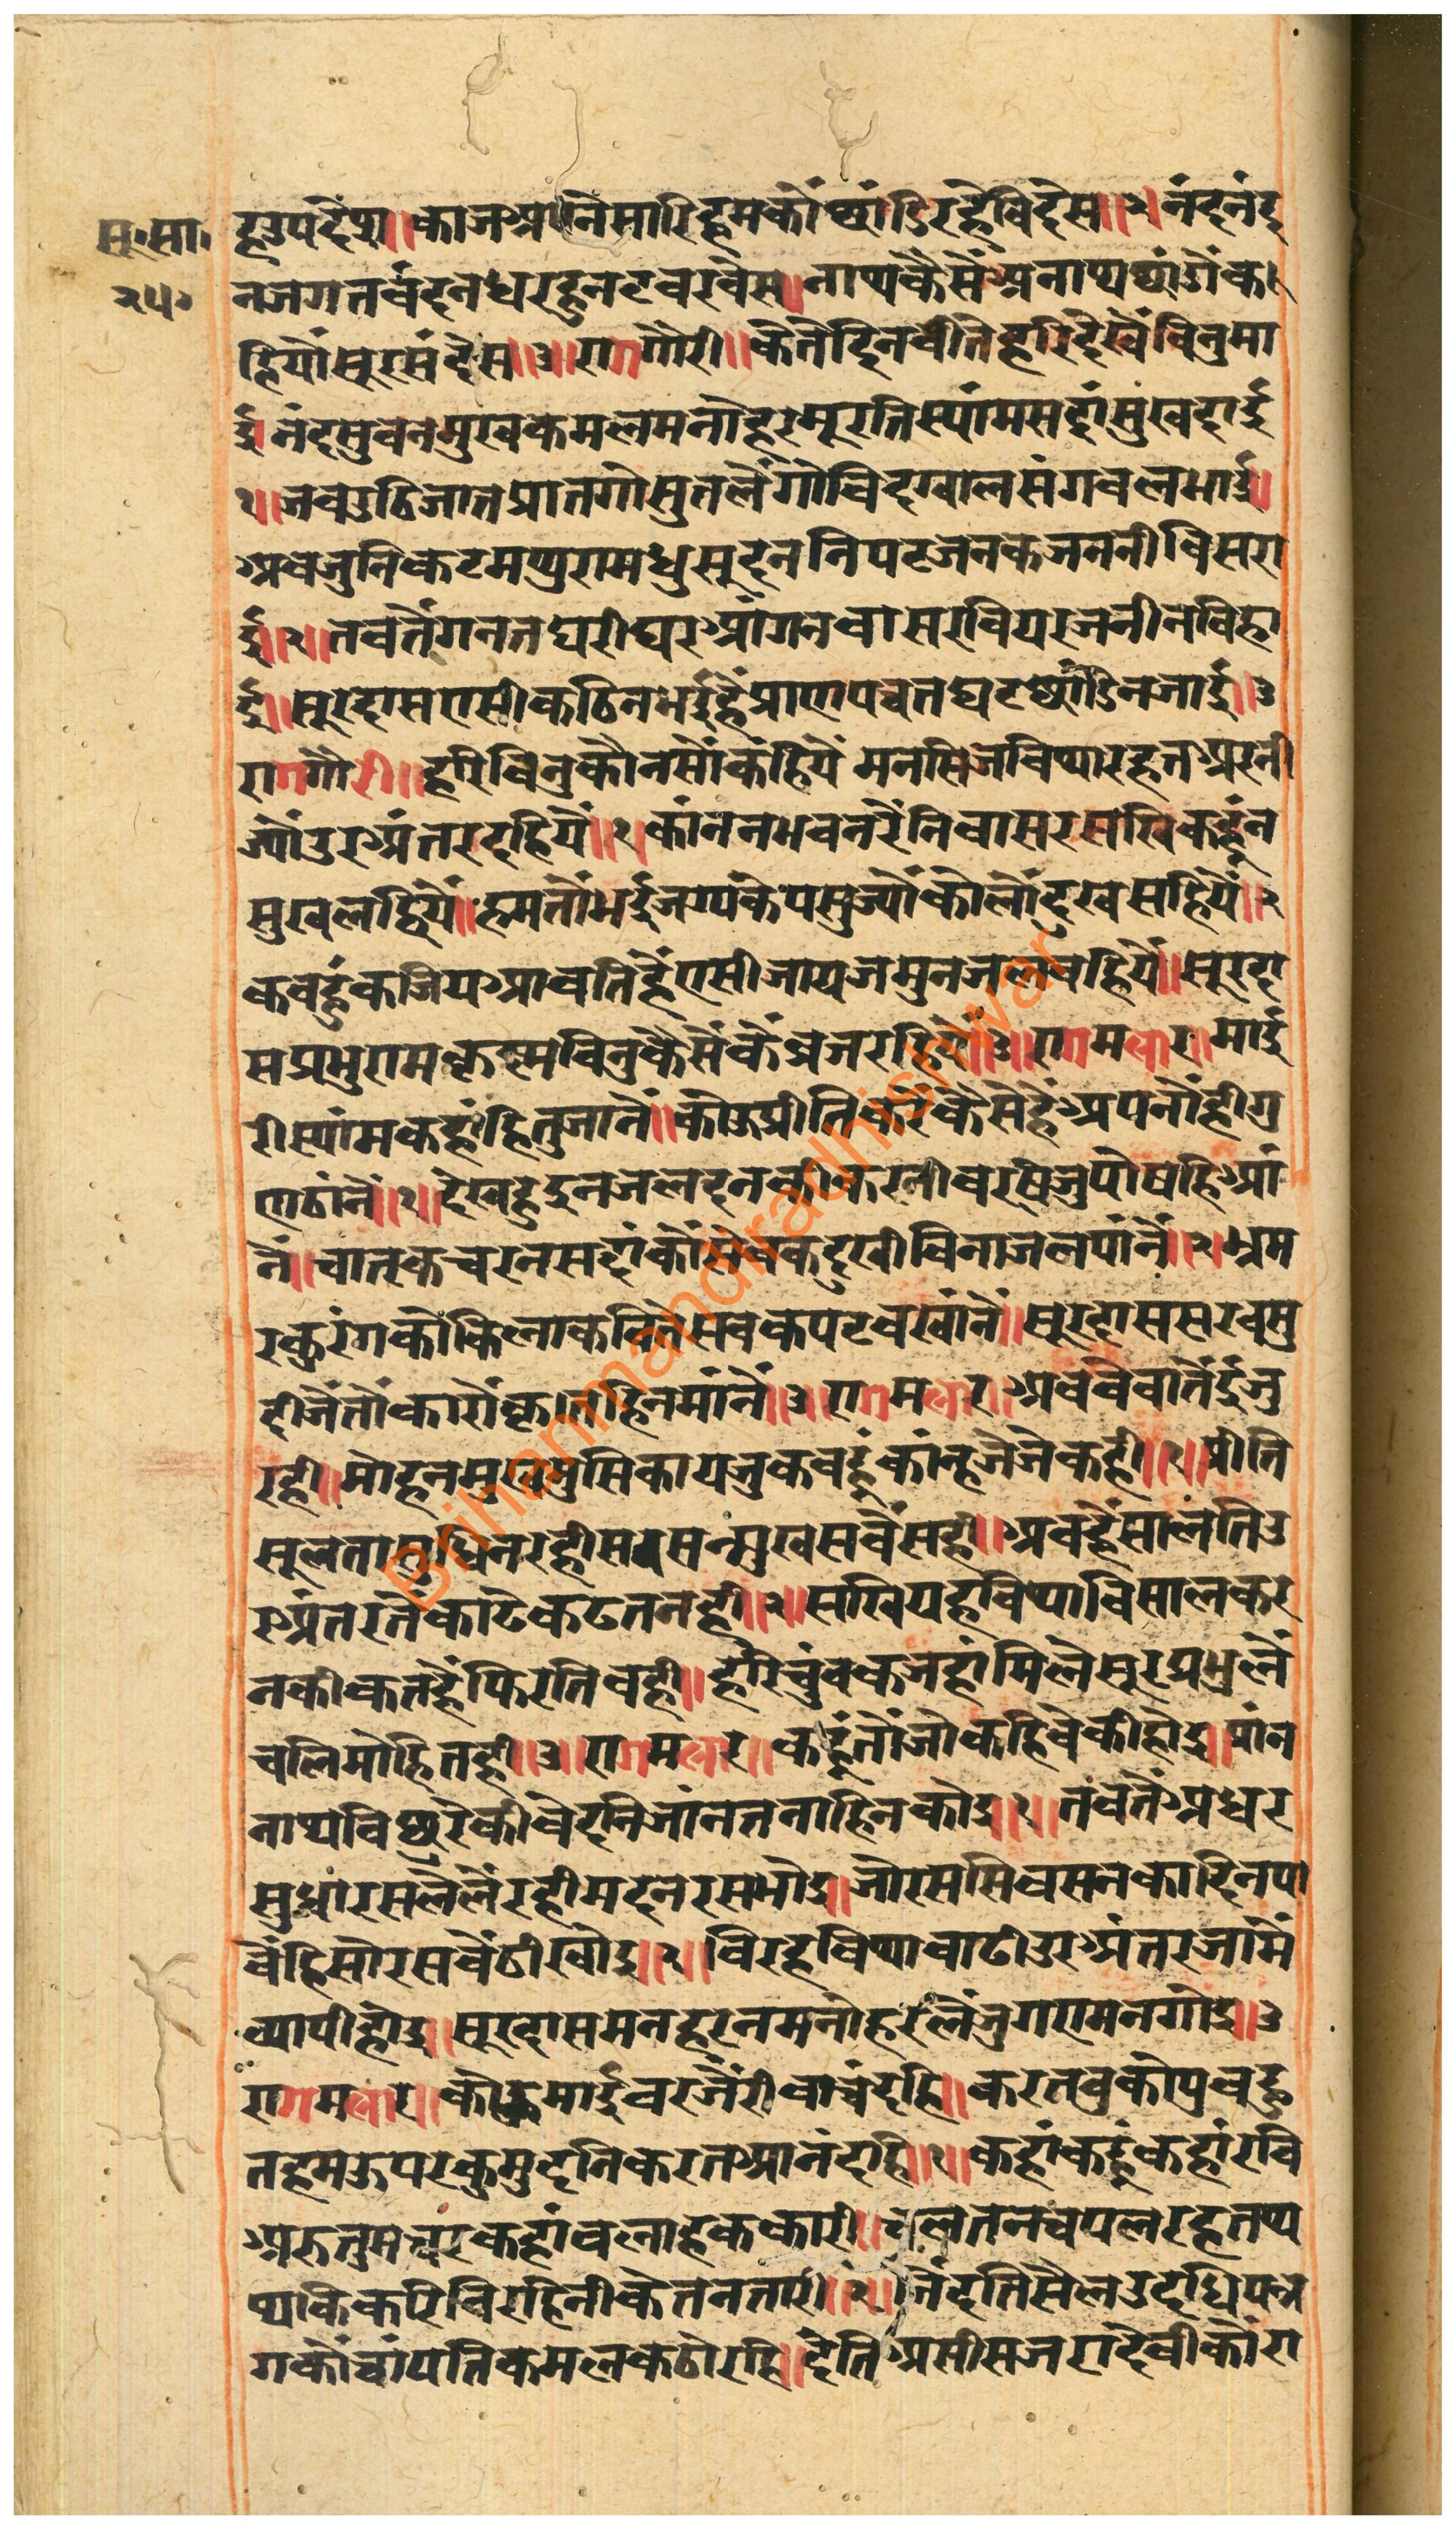 सू॰सा॰
२५॰
हूउपदेस॥काजआपनेसारिहमकौंछांडिरहेविदेस॥२॥नंदनंद
नजगतवंदनधरहुनटवरवेस॥नाथकैसेंअनाथछांडेक
हियौसूरसंदेस॥३॥रागगौरी॥केतेदिनवीतेहरिदेखेंविनुमा
ई॥नंदसुवनमुखकमलमनोहरमूरतिस्यांमसदांसुखदाई
१॥जवउठिजातप्रातगोसुतलैंगोविंदग्वालसंगवलभाई॥
अवजुनिकटमथुरामधुसूदननिपटजनकजननीविसरा
ई॥२॥तवतैंगनतघरीघरआंगनवासरवियरजनीनविहा
ई॥सूरदासएसीकठिनभईहैंप्राणपचतघटछांडिनजाई॥३
रागगौरी॥हरिविनुकौनसौंकहियैं मनसिजविथारहतअरनी
ज्यौंउरअंतरदहियैं॥१॥कांननभवनरैंनिवासरसखिकहूंन
सुखलहियैं॥हमतौंभईजग्यकेपसुज्यौंकौलौंदुखसहियैं॥२
कवहुंकजियआवतिहैंएसीजायजमुनजलवहियैं॥सूरदा
सप्रभुरामकृष्णविनुकैसेंकेंव्रजरहियैं॥३॥रागमलार॥माई
रीस्यांमकहांहितुजानें॥कोऊप्रीतिकरेंकैसेहूंअपनौंहीगु
णठांनें॥१॥देखहुदुनजलदनकीकरनीवरषेंजुपोषहिआं
नें॥चातकचरनसदांकौंसेवकदुखीविनाजलपांनें॥२॥भ्रम
रकुरंगकोकिलाकेचितसेवकपटवखांनें॥सूरदाससरवसु
दीजैंतौंकारौंकृताहिनमांनें॥३॥रागमलार॥अववेवातेंईजु
रही॥मोहनमुखिमुसिकायजुकवहूंकांन्हजेजेकही॥१॥प्रीति
सूलतावुधिनरहीसवसन्मुखसवैंसही॥अवहैंसालंतिउ
रअंतरतेंकाढेकढतनही॥२॥सखियहविथाविसालकर
नकीकतहैंफिरतिवही॥हरिचुंवकजहांमिलेसूरप्रभुलै
चलिमोहितही॥३॥रागमलार॥कहूंतौंजोकहिवेकीहोइ॥प्रांन
नाथविछुरेकीवेदनिजांनतनाहिनकोइ॥१॥तंवतेंअधर
सुधारसलैलैंरहीमदनरसभोइ॥जोरससिवसनकादिनपा
वेंहिसोरसवेंठीखोइ॥२॥विरहविथावाढीउरअंतरजामें
व्यापीहोइ॥सूरदासमनहरनमनोहरलेंजुगएमनगोइ॥३
रागमलार॥कोऊमाईवरजैंरीवाचंदहि॥करतवुकोपुवहु
तहमऊपरकुमुदनिकरतआनंदहि॥१॥कहांकहूंकहांरवि
अरुतुमचरकहांवलाहककारी॥चलतनचपलरहतथ
थकिकरिविरहिनीकेतनतारी॥२॥निंदतिसैलउदधिपन्न
गकौंचांपतिकमलकठोरहि॥देतिअसीसजरादेवीकौंरा